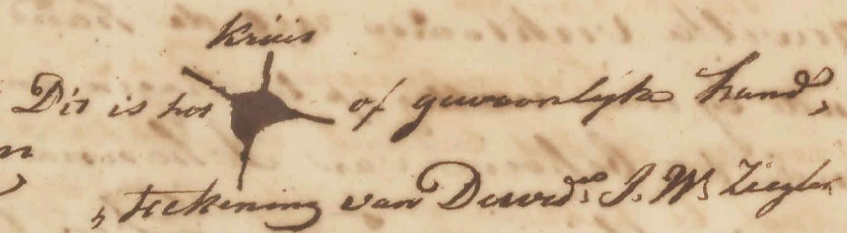 Kruis
Dit is het of gewoonlyke hand,
„ teekening van Dewed.e J. W. Ziegler